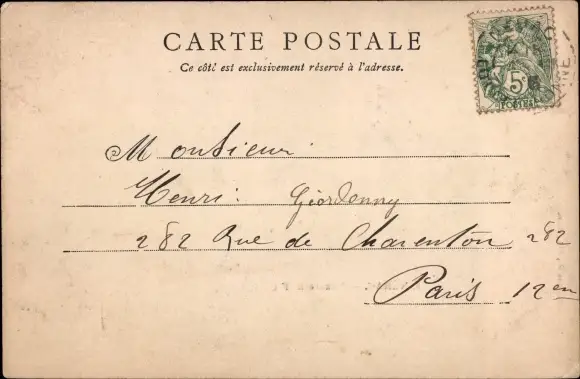 CARTE POSTALE
Ce côté est exclusivement réservé à l'adresse.
5c
POSTES
Monsieur
Henri: Géordonny
282 Rue de Charenton 282
Paris 12em